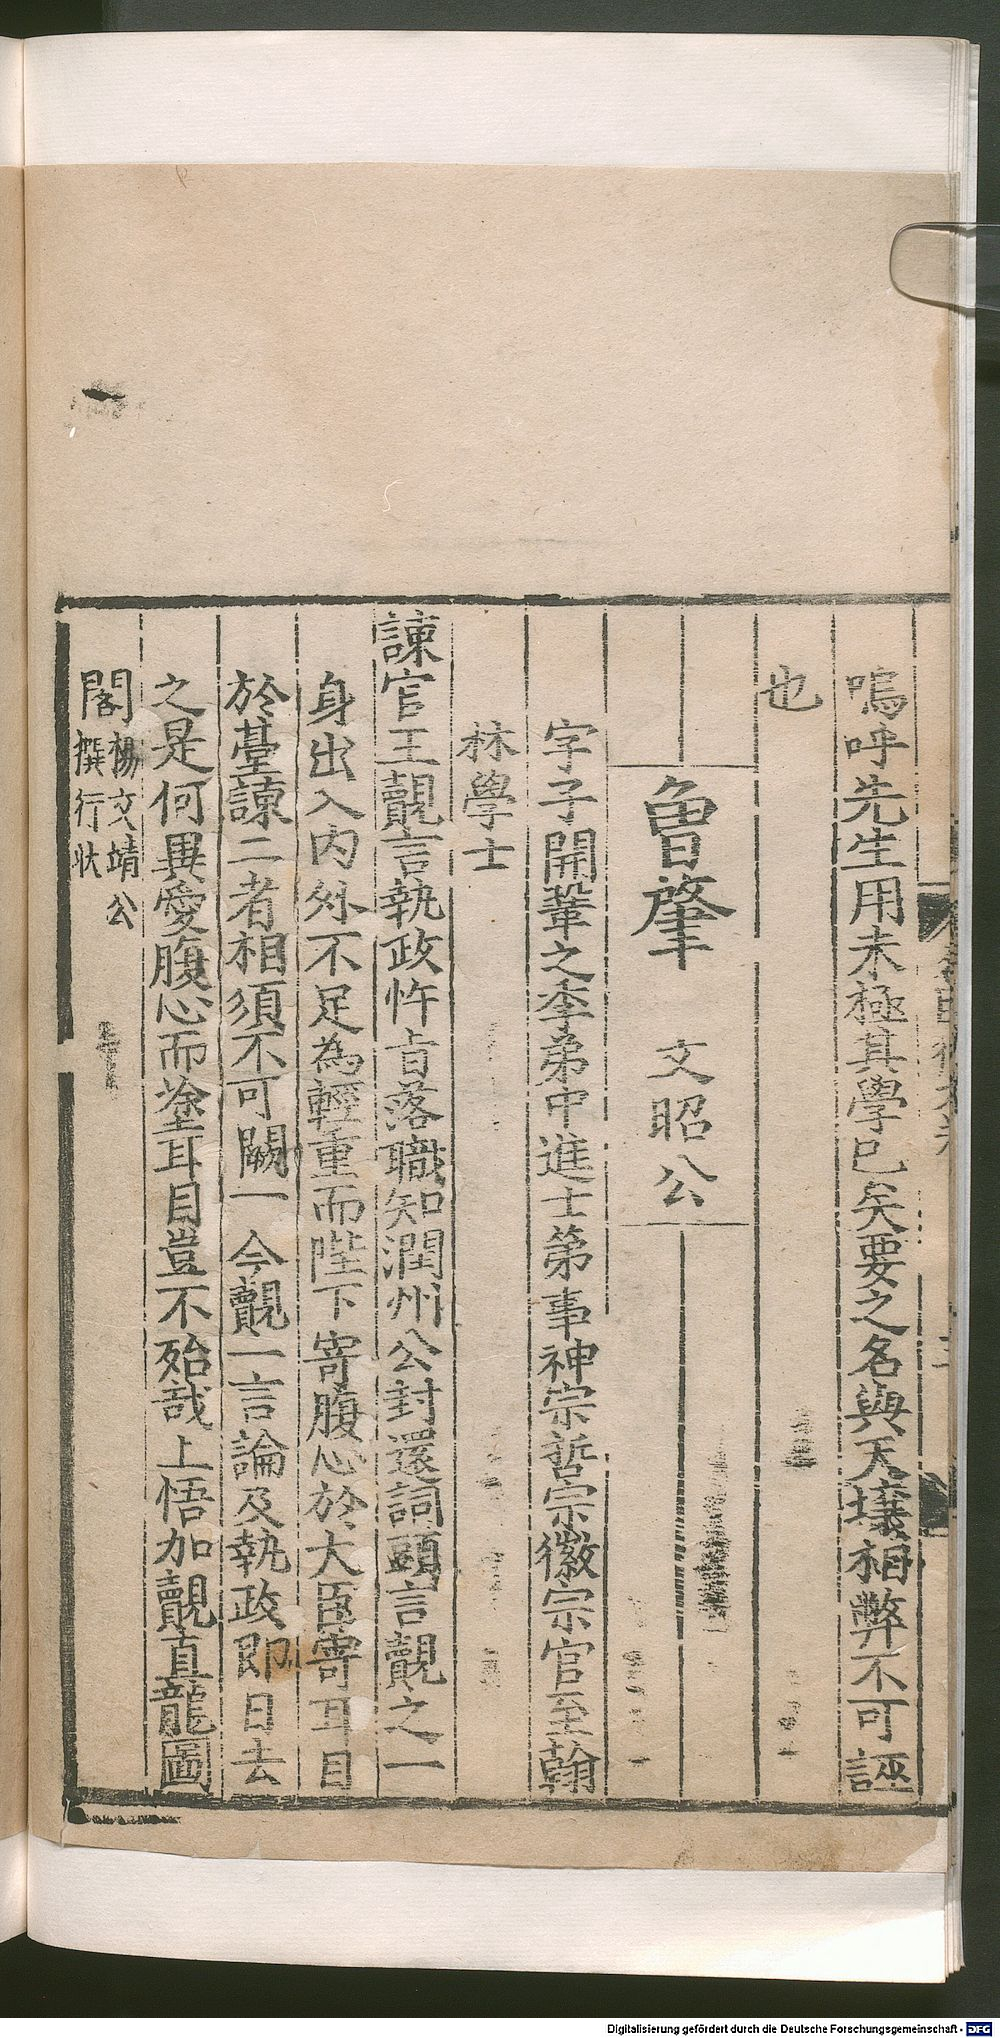 嗚呼先生用未極其學已矣要之名與天壤相弊不可誣
也
曾肇 文昭公
字子開鞏之季弟中進士第事神宗哲宗徽宗官至翰
林學士
諫官王覿言執政忤旨落職知潤州公封還詞頭言覿之一
身出入内外不足為輕重而陛下寄腹心於大臣寄耳目
於臺諫二者相須不可闕一今覿一言論及執政即日去
之是何異愛腹心而塗耳目豈不殆哉上悟加覿直龍圖
閣楊文靖公
撰行狀
Digitalisierung gefördert durch die Deutsche Forschungsgemeinschaft - DFG